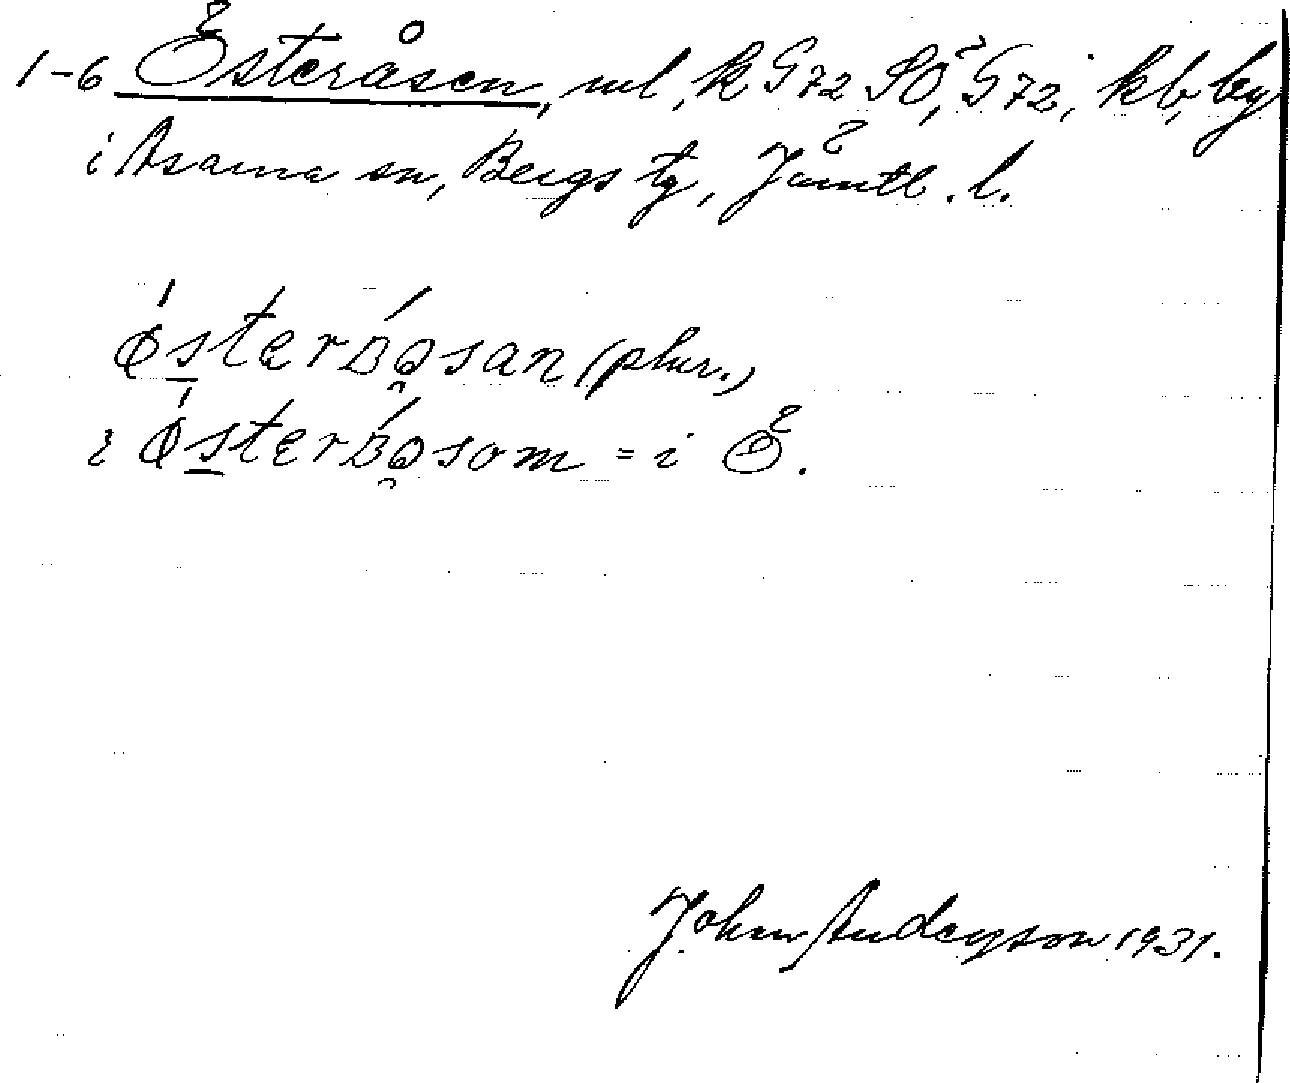 1-6 Österåsen, ml, k G72 SÖ, G72, kb, by
i Åsarna sn, Bergs tg, Jämtl. l.
østerɒ́san (plur.)
i østerɒ́som = i Ö.
John Anderson 1931.